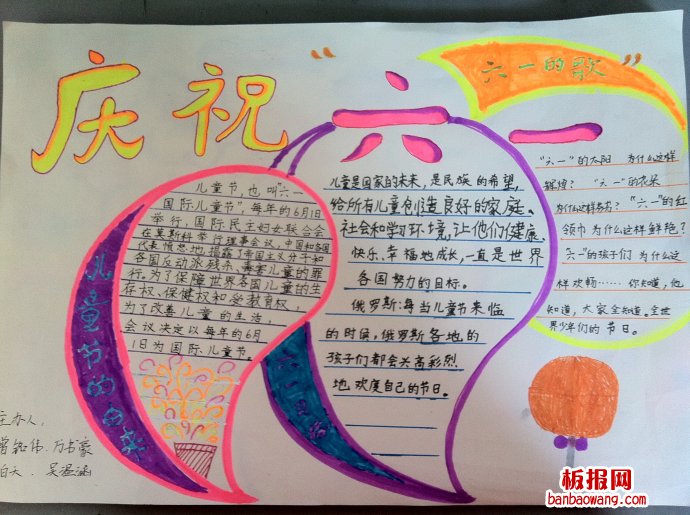 庆祝“六一”
儿童节的由来
儿童节,也叫“六一
国际儿童节”,每年的6月1日
举行,国际民主妇女联合会
在莫斯科举行理事会议,中国和各国
代表愤怒地指露了帝国主义分子和
各国反动派残杀、毒害儿童的罪
行。为了保障世界各国儿童的生
存权、保健权和受教育权,
为了改善儿童的生活,
会议决定以每年的6月
1日为国际儿童节。
儿童是国家的未来,是民族的希望,
给所有儿童创造良好的家庭、
社会和学习环境,让他们健康、
快乐、幸福地成长,一直是世界
各国努力的目标。
俄罗斯:每当儿童节来临
的时候,俄罗斯各地的
孩子们都会兴高彩烈
地欢度自己的节日。
六一的歌
“六一”的太阳 为什么这样
辉煌? “六一”的花朵
为什么这样芬芳? “六一”的红
领巾为什么这样鲜艳?
“六一”的孩子们 为什么这
样欢畅……你知道,他
知道,大家全知道。全世
界少年们的节日。
主办人:
板报网
banbaowang.com